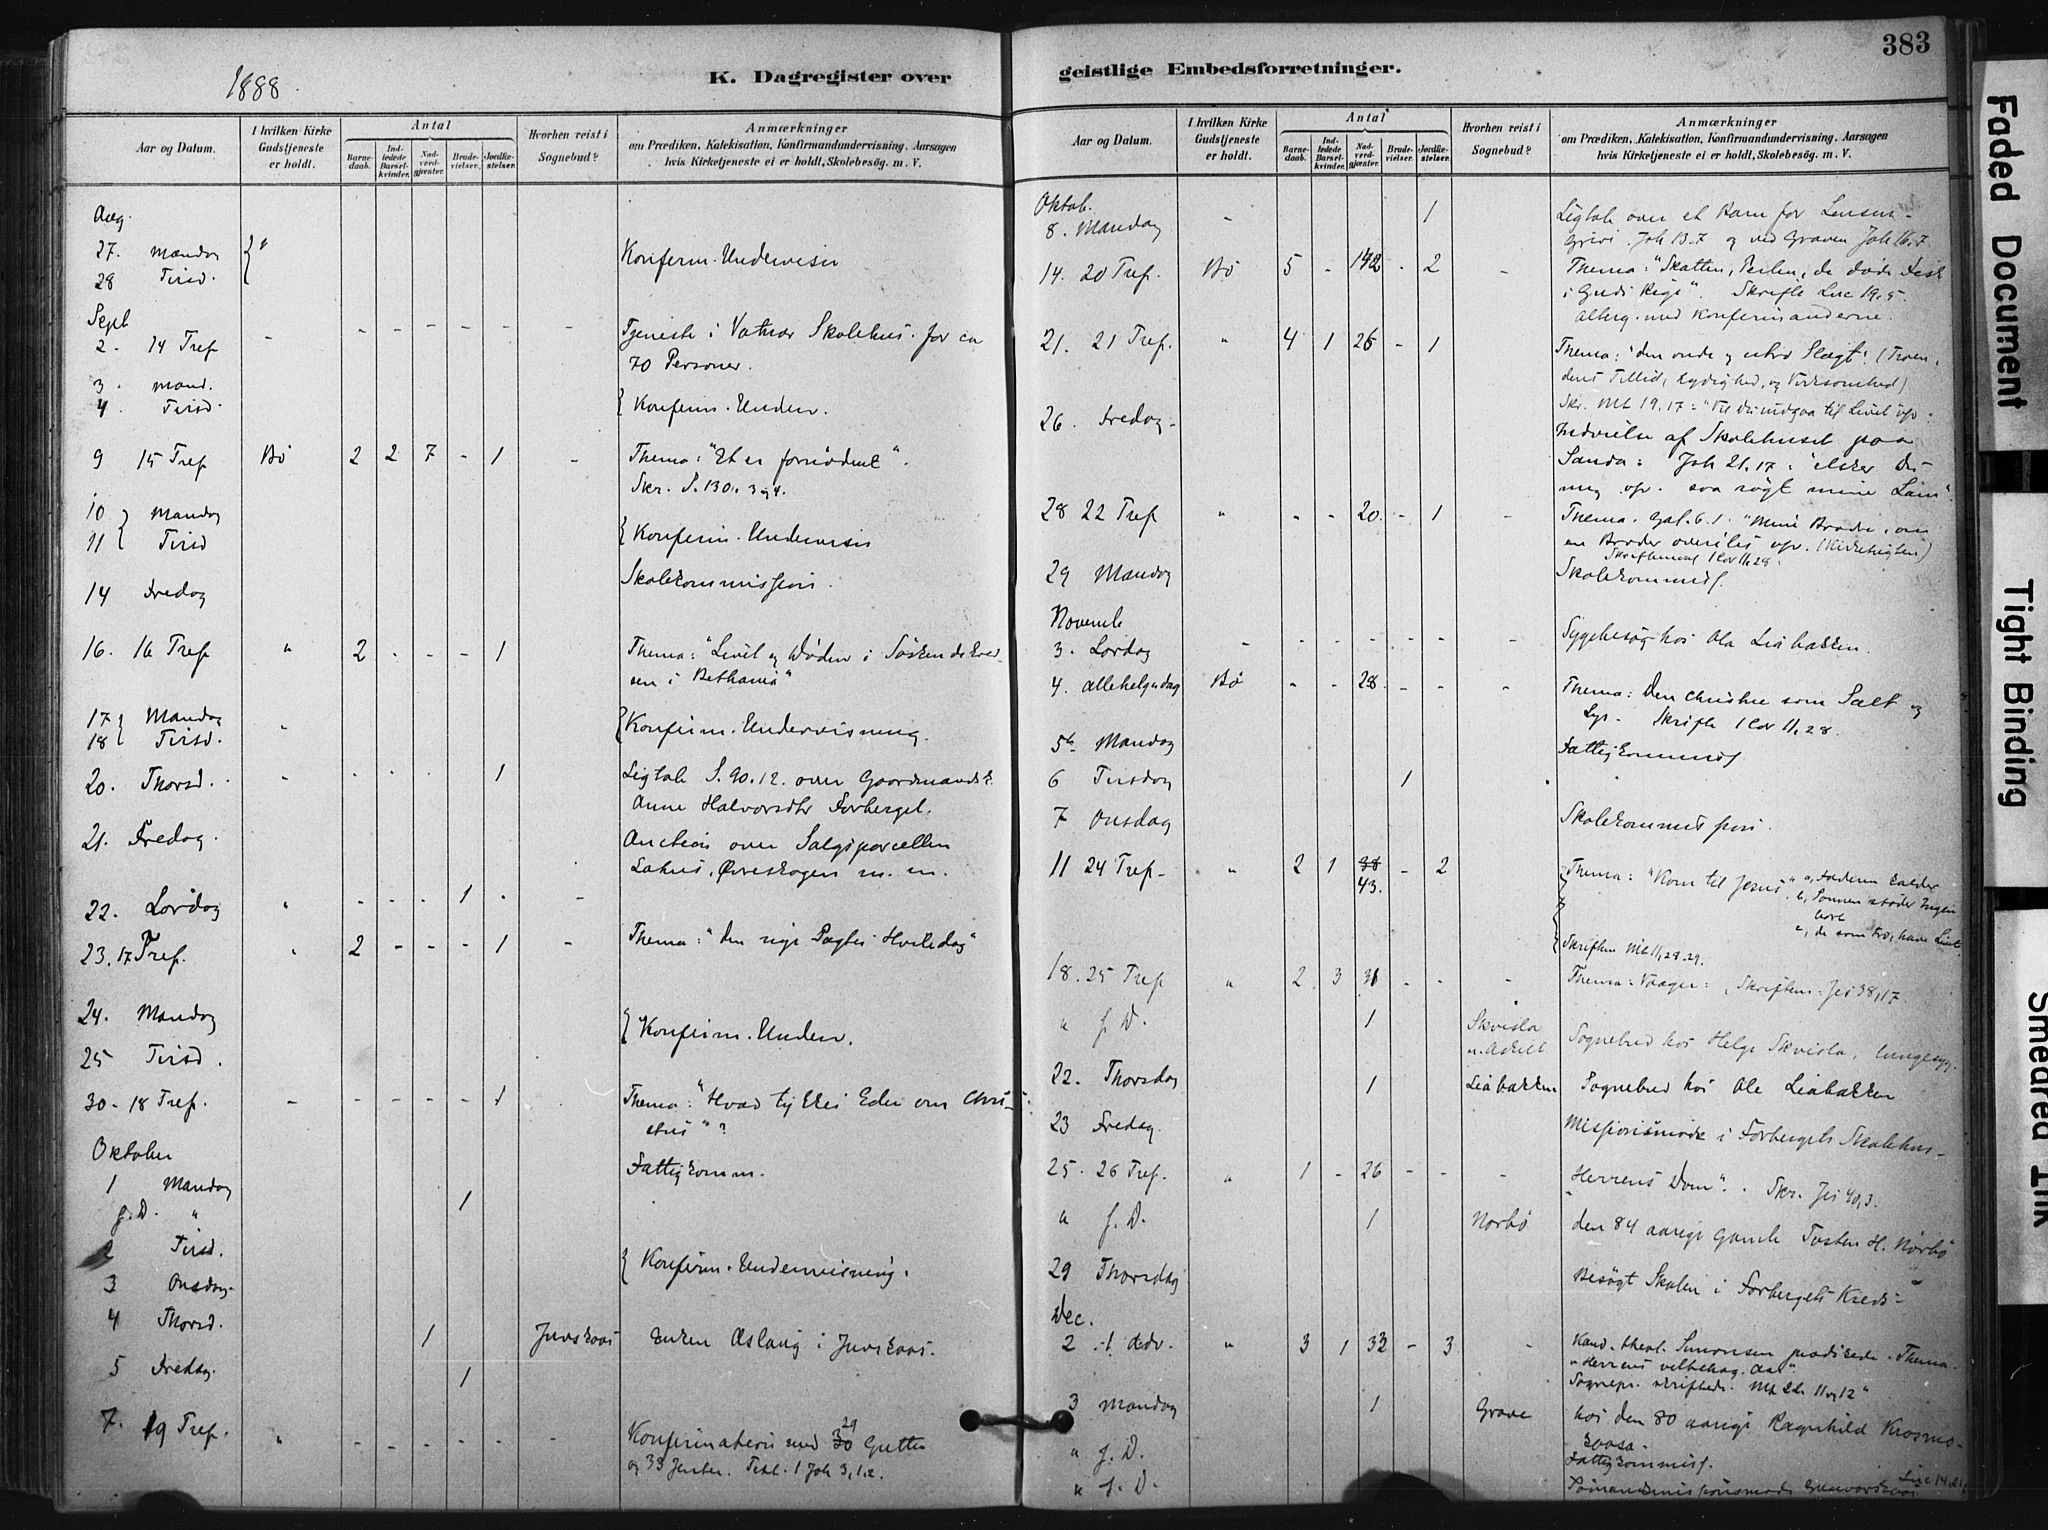 383
1888.
K. Dagregister over
geistlige Embedsforretninger.
Aar og Datum.
I hvilken Kirke Gudstjeneste er holdt.
Antal
Barnedaab.
Indledede Barselkvinder.
Nadverdgjæster.
Brudevielser.
Jordfæstelser.
Hvorhen reist i Sognebud?
Anmærkninger
om Prædiken, Katekisation, Konfirmandundervisning, Aarsagen
hvis Kirketjeneste ei er holdt, Skolebesög. m. V.
Aug.
27. Mandag
28 Tirsd.
Konfirm. Undervisn
Sept
2. 14 Tref - - - - - - -
Tjeneste i Skolehus. for ca
70 Personer.
3. Mand.
4. Tirsd.
Konfirm. Underv.
9 15 Tref Bö 2 2 7 - 1 -
Thema: "Et er fornødent".
Skr. S. 130. 3 og 4.
10 Mandag
11 Tirsd
Konfirm. Undervisn
14 Fredag
Skolekommission.
16. 16 Tref " 2 - - - 1
Thema: "Livet og Døden i
sen i Bethania"
17 Mandag
18 Tirsd.
Konfirm. Undervisning.
20. Thorsd. - - - - - 1
Ligtale S. 90.12. over Gaardmandsk.
Anne Halvorsdtr Forberget.
21. Fredag.
Auction over Salgsparcellen
m. m.
22. Lørdag " - - - 1 - -
23. 17 Tref. " 2 - - - 1 -
Thema: "Den Hviledag"
24. Mandag
25 Tirsd.
Konfirm. Underv.
30 - 18 Tref. - - - - - 1
Thema: "Hvad tykkes Eder om Chri-
stus"?
Oktober
1 Mandag
Fattigkomm.
s. D. " 1
2 Tirsd.
3 Onsdag.
Konfirm. Undervisning.
4 Thorsd. 1 Juvskaas
Enken Aslaug i Juvskaas.
5 Fredag. 1
7. 19 Tref. " - - - - - -
Konfirmation med 30 29 Gutter
og 33 Jenter. Text. 1 Joh 3,1.2.
Aar og Datum.
I hvilken Kirke Gudstjeneste er holdt.
Antal
Barnedaab.
Indledede Barselkvinder.
Nadverdgjæster.
Brudevielser.
Jordfæstelser.
Hvorhen reist i Sognebud?
Anmærkninger
om Prædiken, Katekisation, Konfirmandundervisning, Aarsagen
hvis Kirketjeneste ei er holdt, Skolebesög. m. V.
Oktob.
8. Mandag - 1
Ligtale over et Barn for
Joh 13.7 og ved Graven Joh 16.7
14. 20 Tref. Bö 5 - 142 - 2 -
Thema: "Skatten, Perlen, de døde Fisk
i Guds Rige". Skrifte Luc 19.5.
Altergang med Konfirmanderne.
21. 21 Tref. " 4 1 26 - 1
Thema: "den onde og utro Slægt" (Troen,
dens Tillid, Lydighed, og Virksomhed)
Skr. Mt 19.17: "Vil du indgaa til Livet
26. Fredag.
Indvielse af Skolehuset paa
Sanda: Joh 21.17: elsker Du
mig osv. saa røgt mine Lam".
28 22 Tref " - - 20 - 1 -
Thema. Gal. 6.1. "Mine Brødre, om
en Broder overiles osv. (Kirketugten)
Skriftemaal 1 Cor 11,28.
29 Mandag
Skolekommiss.
Novemb
3. Lørdag - - - - - - -
Sygebesøg hos Ola Liabakken.
4. Allehelgndag Bö - - 28 - - -
Thema: Den christne som Salt og
Lys. Skrifte 1 Cor 11,28.
5te Mandag
Fattigkommiss
6 Tirsdag 1
7 Onsdag
Skolekommission.
11 24 Tref. " 2 1 38 43. - 2
Thema: "Kom til Jesus". a, Faderen kalder
b, Sønnen støder Ingen
bort
c, de som tro, have Livet
Skriften Mt 11,28-29.
18. 25 Tref " 2 3 31 - - -
Thema: Vaager: Skriften: Jes 38,17.
" s. D. 1 Skvisla
Sognebud hos Helge Skvisla,
22. Thorsdag 1 Liabakken
Sognebud hos Ole Liabakken
23 Fredag.
Missionsmøde i Forbergets Skolehus -
25. 26 Tref. " 1 - 26 - - -
"Herrens Dom". Skr. Jes 40,3.
" s. D. 1 Norbö
den 84 aarige Gamle Tosten H. Norbö
29 Thorsdag
Besøgt Skolen i Forbergets Kreds -
Dec.
2 1 Adv. " 3 1 32 - 3 -
Kand. theol. Simonsen prædikede. Thema.
"Herrens velbehag. Aar"
Sognepr. skriftede. Mt 22. 11 og 12"
3 Mandag 1 Grave
hos den 80 aarige Ragnhild
" s. D.
Fattigkommiss.
" s. D.
Luc 14.21